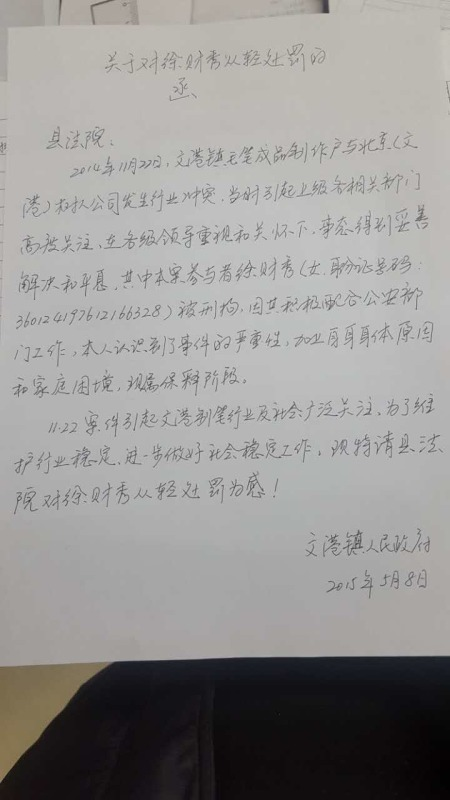 关于对徐财秀从轻处罚的
函
县法院：
2014年11月22日，文港镇毛笔成品制作户与北京（文
港）公司发生行业冲突，当时引起上级各相关部门
高度关注，在各级领导重视和关怀下，事态得到妥善
解决和平息，其中本案参与者徐财秀（女，身份证号码：
360124197612166328）被刑拘，因其积极配合公安部
门工作，本人认识到了事件的严重性，加上自身身体原因
和家庭困境，现属保释阶段。
11.22案件引起文港制笔行业及社会广泛关注，为了维
护行业稳定，进一步做好社会稳定工作，现特请县法
院对徐财秀从轻处罚为感！
文港镇人民政府
2015年5月8日